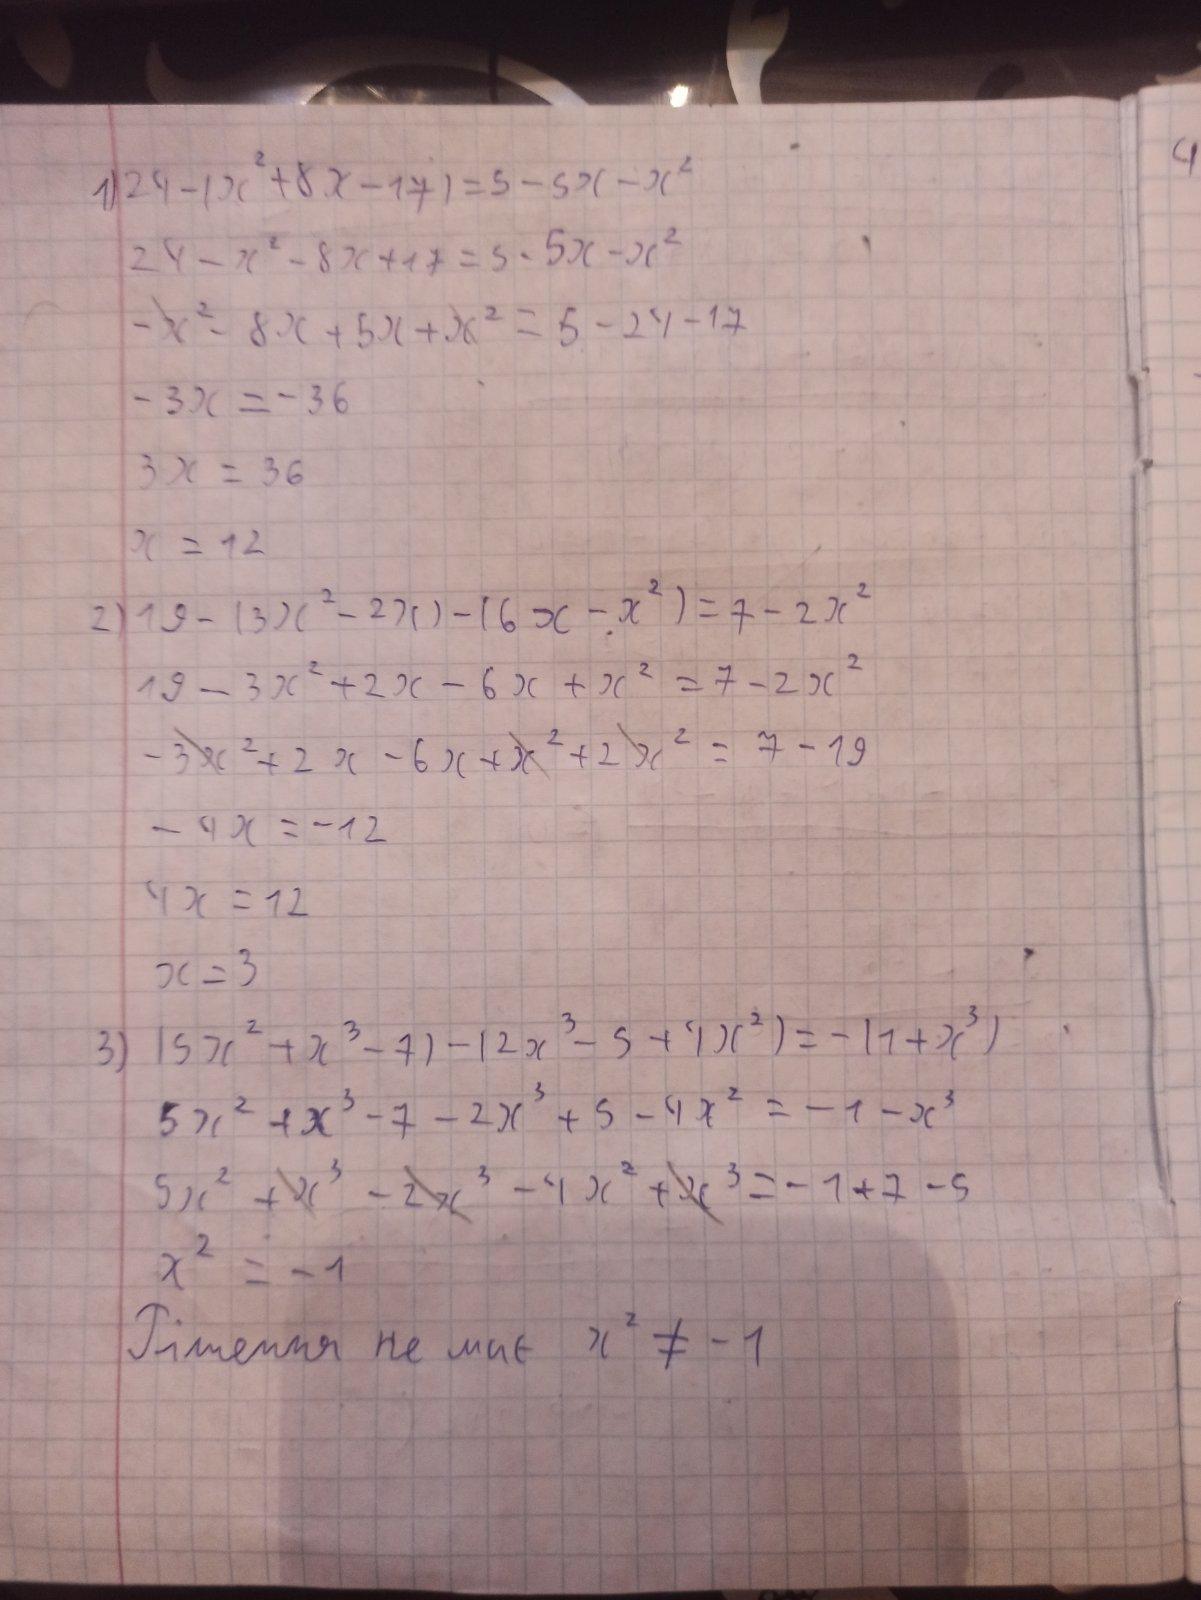 1) 24-(x²+8x-17)=5-5x-x²
24-x²-8x+17=5-5x-x²
-x²-8x+5x+x²=5-24-17
-3x=-36
3x=36
x=12
2) 19-(3x²-2x)-(6x-x²)=7-2x²
19-3x²+2x-6x+x²=7-2x²
-3x²+2x-6x+x²+2x²=7-19
-4x=-12
4x=12
x=3
3) (5x²+x³-7)-(2x³-5+4x²)=-(1+x³)
5x²+x³-7-2x³+5-4x²=-1-x³
5x²+x³-2x³-4x²+x³=-1+7-5
x²=-1
Рішення не має x²≠-1
4